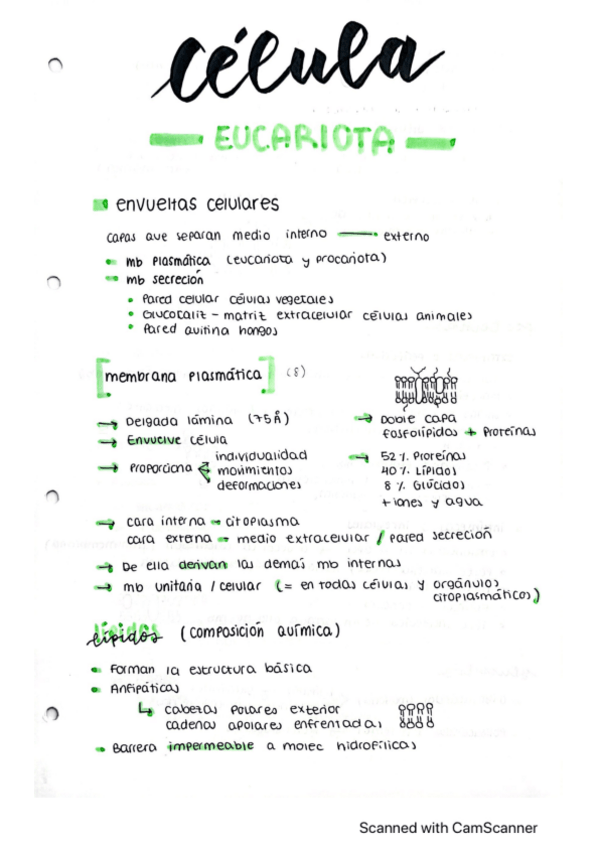 célula
EUCARIOTA
envueltas celulares
capas que separan medio interno — externo
mb plasmática (eucariota y procariota)
mb secreción
Pared celular células vegetales
Glucocalix - matriz extracelular células animales
Pared quitina hongos
[membrana plasmática] (8)
→ Delgada lámina (75Å)
→ Envuelve célula
→ Proporciona individualidad
movimientos
deformaciones
→ Doble capa
fosfolípidos + Proteínas
→ 52 % Proteínas
40 % Lípidos
8 % Glúcidos
+ iones y agua
→ cara interna - citoplasma
cara externa - medio extracelular / pared secreción
→ De ella derivan las demás mb internas
→ mb unitaria / celular (= en todas células y orgánulos
citoplasmáticos)
lípidos (composición química)
Forman la estructura básica
Anfipáticas
↳ cabezas polares exterior
cadenas apolares enfrentadas
Barrera impermeable a molec hidrofílicas
Scanned with CamScanner